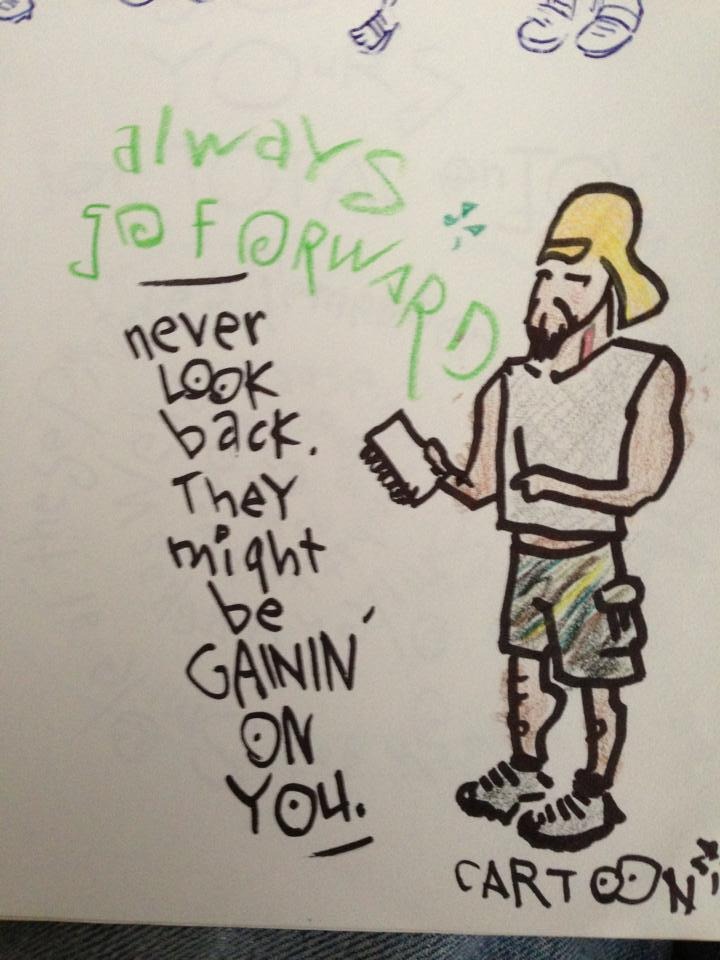 always
go FORWARD
never
LOOK
back.
They
might
be
GAININ'
ON
YOU.
CARTOON